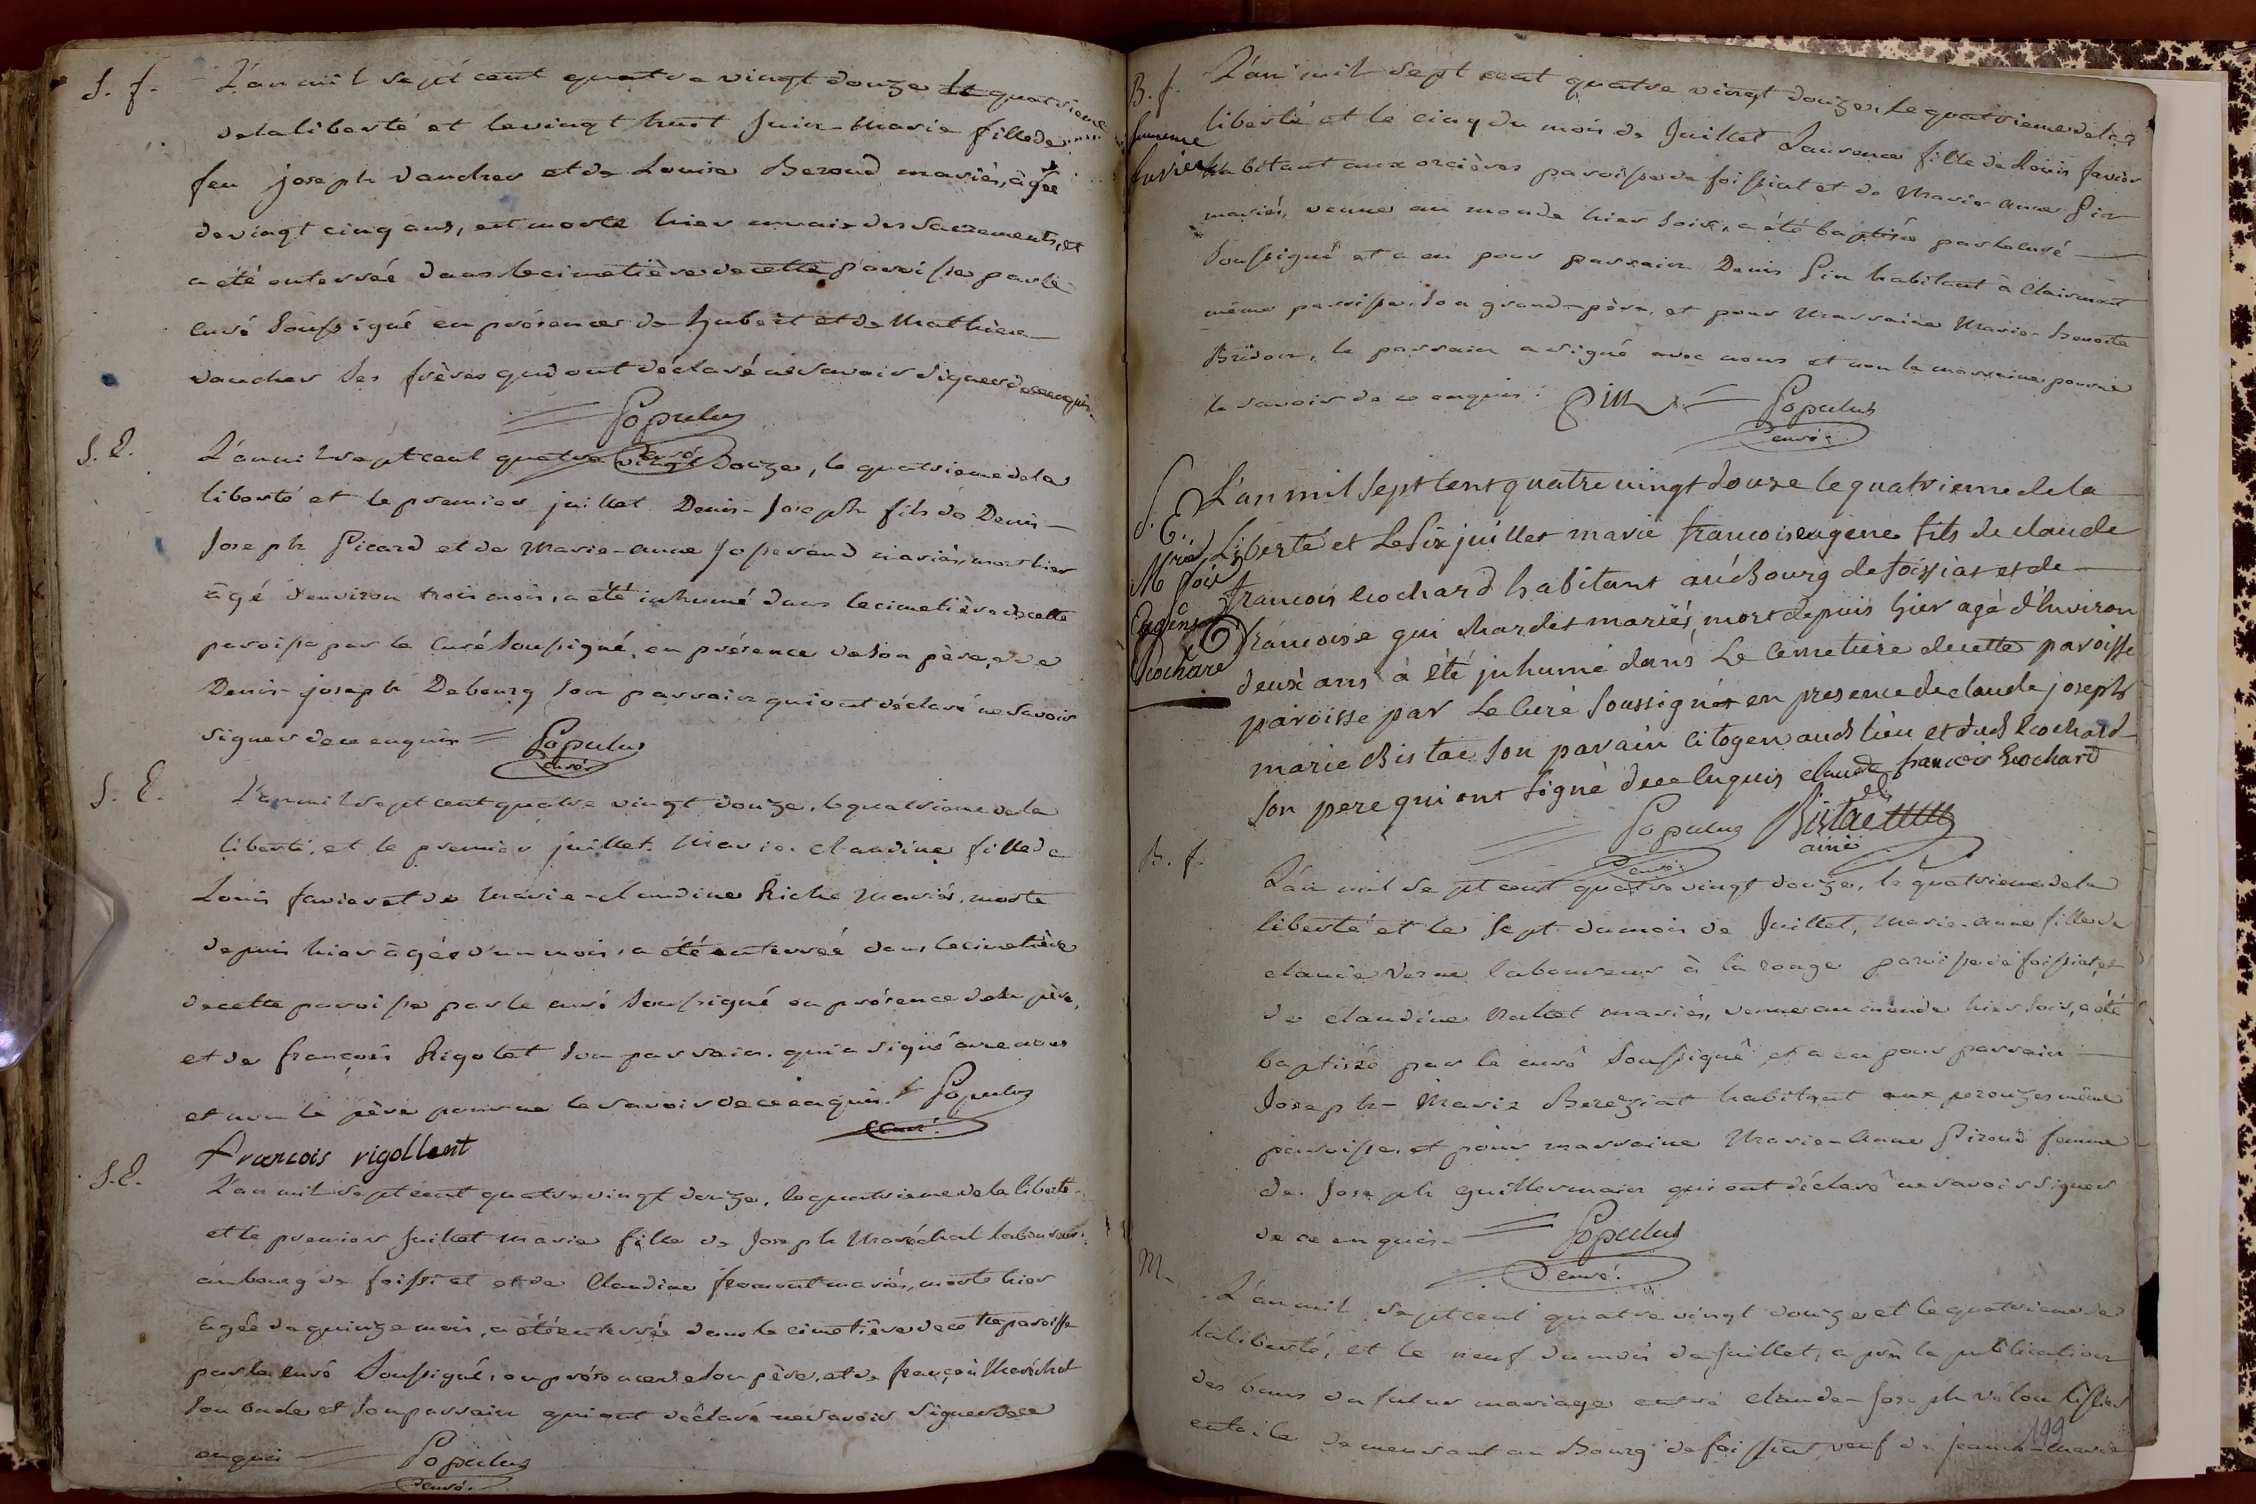 S. f. L'an mil sept cent quatre vingt douze le quatrieme
de la liberté et le vingt huit Juin Marie fille de
feu joseph vaucher et de Louise Beroud mariés, âgée
de vingt cinq ans, est morte hier munie des sacrements, et
a été enterrée dans le cimetière de cette paroisse par le
curé soussigné en présence de hubert et de Mathieu
vaucher ses frères qui ont déclaré ne savoir signer de ce enquis
Populus
curé
S. E. L'an mil sept cent quatre vingt Douze, le quatrieme de la
liberté et le premier juillet Denis-Joseph fils de Denis-
Joseph Picard et de Marie-anne Josserand mariés, mort hier
âgé d'environ trois mois, a été inhumé dans le cimetière de cette
paroisse par le Curé soussigné, en présence de son père, et de
Denis-joseph Debourg son parrain qui ont déclaré ne savoir
signer de ce enquis = Populus
curé
S. E. L'an mil sept cent quatre vingt douze, le quatrieme de la
liberté, et le premier juillet. Marie-claudine fille de
Louis favier et de Marie-claudine Riche Mariés, morte
depuis hier âgée d'un mois, a été enterrée dans le cimetière
de cette paroisse par le curé soussigné en présence de son père,
et de françois Rigolet son parrain. qui a signé avec nous
et non le père pour ne le savoir de ce enquis. Populus
curé.
francois rigollent
S. E. L'an mil sept cent quatre vingt douze, le quatrieme de la liberté
et le premier Juillet Marie fille de Joseph Maréchal laboureur
au bourg de foissiat et de Claudine fromont mariés, morte hier
âgée de quinze mois, a été enterrée dans le cimetière de cette paroisse
par le curé soussigné, en présence de son père, et de françois Maréchal
son oncle et son parrain qui ont déclaré ne savoir signer de ce
enquis Populus
curé.
B. f. L'an mil sept cent quatre vingt douze, le quatrieme de la
liberté et le cinq du mois de Juillet Laurence fille de Louis favier
favier habitant aux orcières paroisse de foissiat et de Marie-anne Pin
mariés, venue au monde hier soir, a été baptisée par le curé
soussigné et a eu pour parrain Denis Pin habitant à Clairmont
même paroisse, son grand-père, et pour Marraine Marie-benoite
Bridon, le parrain a signé avec nous et non la marraine pour ne
le savoir de ce enquis. Pin Populus
curé.
S. E. L'an mil sept cent quatre vingt douze le quatrieme de la
Liberté et Le six juillet marie francois eugene fils de claude
francois cochard habitant au Bourg de foissiat et de
francoise guichardet mariés, mort depuis hier agé d'Environ
deux ans à été inhumé dans Le Cemetiere de cette paroisse
paroisse par Le Curé soussigné en presence de claude joseph
marie Bistac son parain citoyen aud lieu et dud cochard
son pere qui ont signé de ce Enquis claude francois cochard
Populus Bistac
curé. ainé
B. f. L'an mil sept cent quatre vingt douze, le quatrieme de la
liberté et le sept du mois de Juillet, Marie-anne fille de
claude Verne laboureur à la rouge paroisse de foissiat, et
de claudine Mallet mariés, venue au monde hier soir, a été
baptisée par le curé soussigné et a eu pour parrain
Joseph-Marie Bereziat habitant aux perouzes même
paroisse, et pour marraine Marie-anne Piroud femme
de Joseph guillermain qui ont déclaré ne savoir signer
de ce enquis. Populus
curé.
M. L'an mil sept cent quatre vingt douze et le quatrieme de
la liberté, et le neuf du mois de Juillet, après la publication
des bans du futur mariage entre claude-Joseph tissier
en toile demeurant au Bourg de foissiat, veuf de jeanne-marie
199